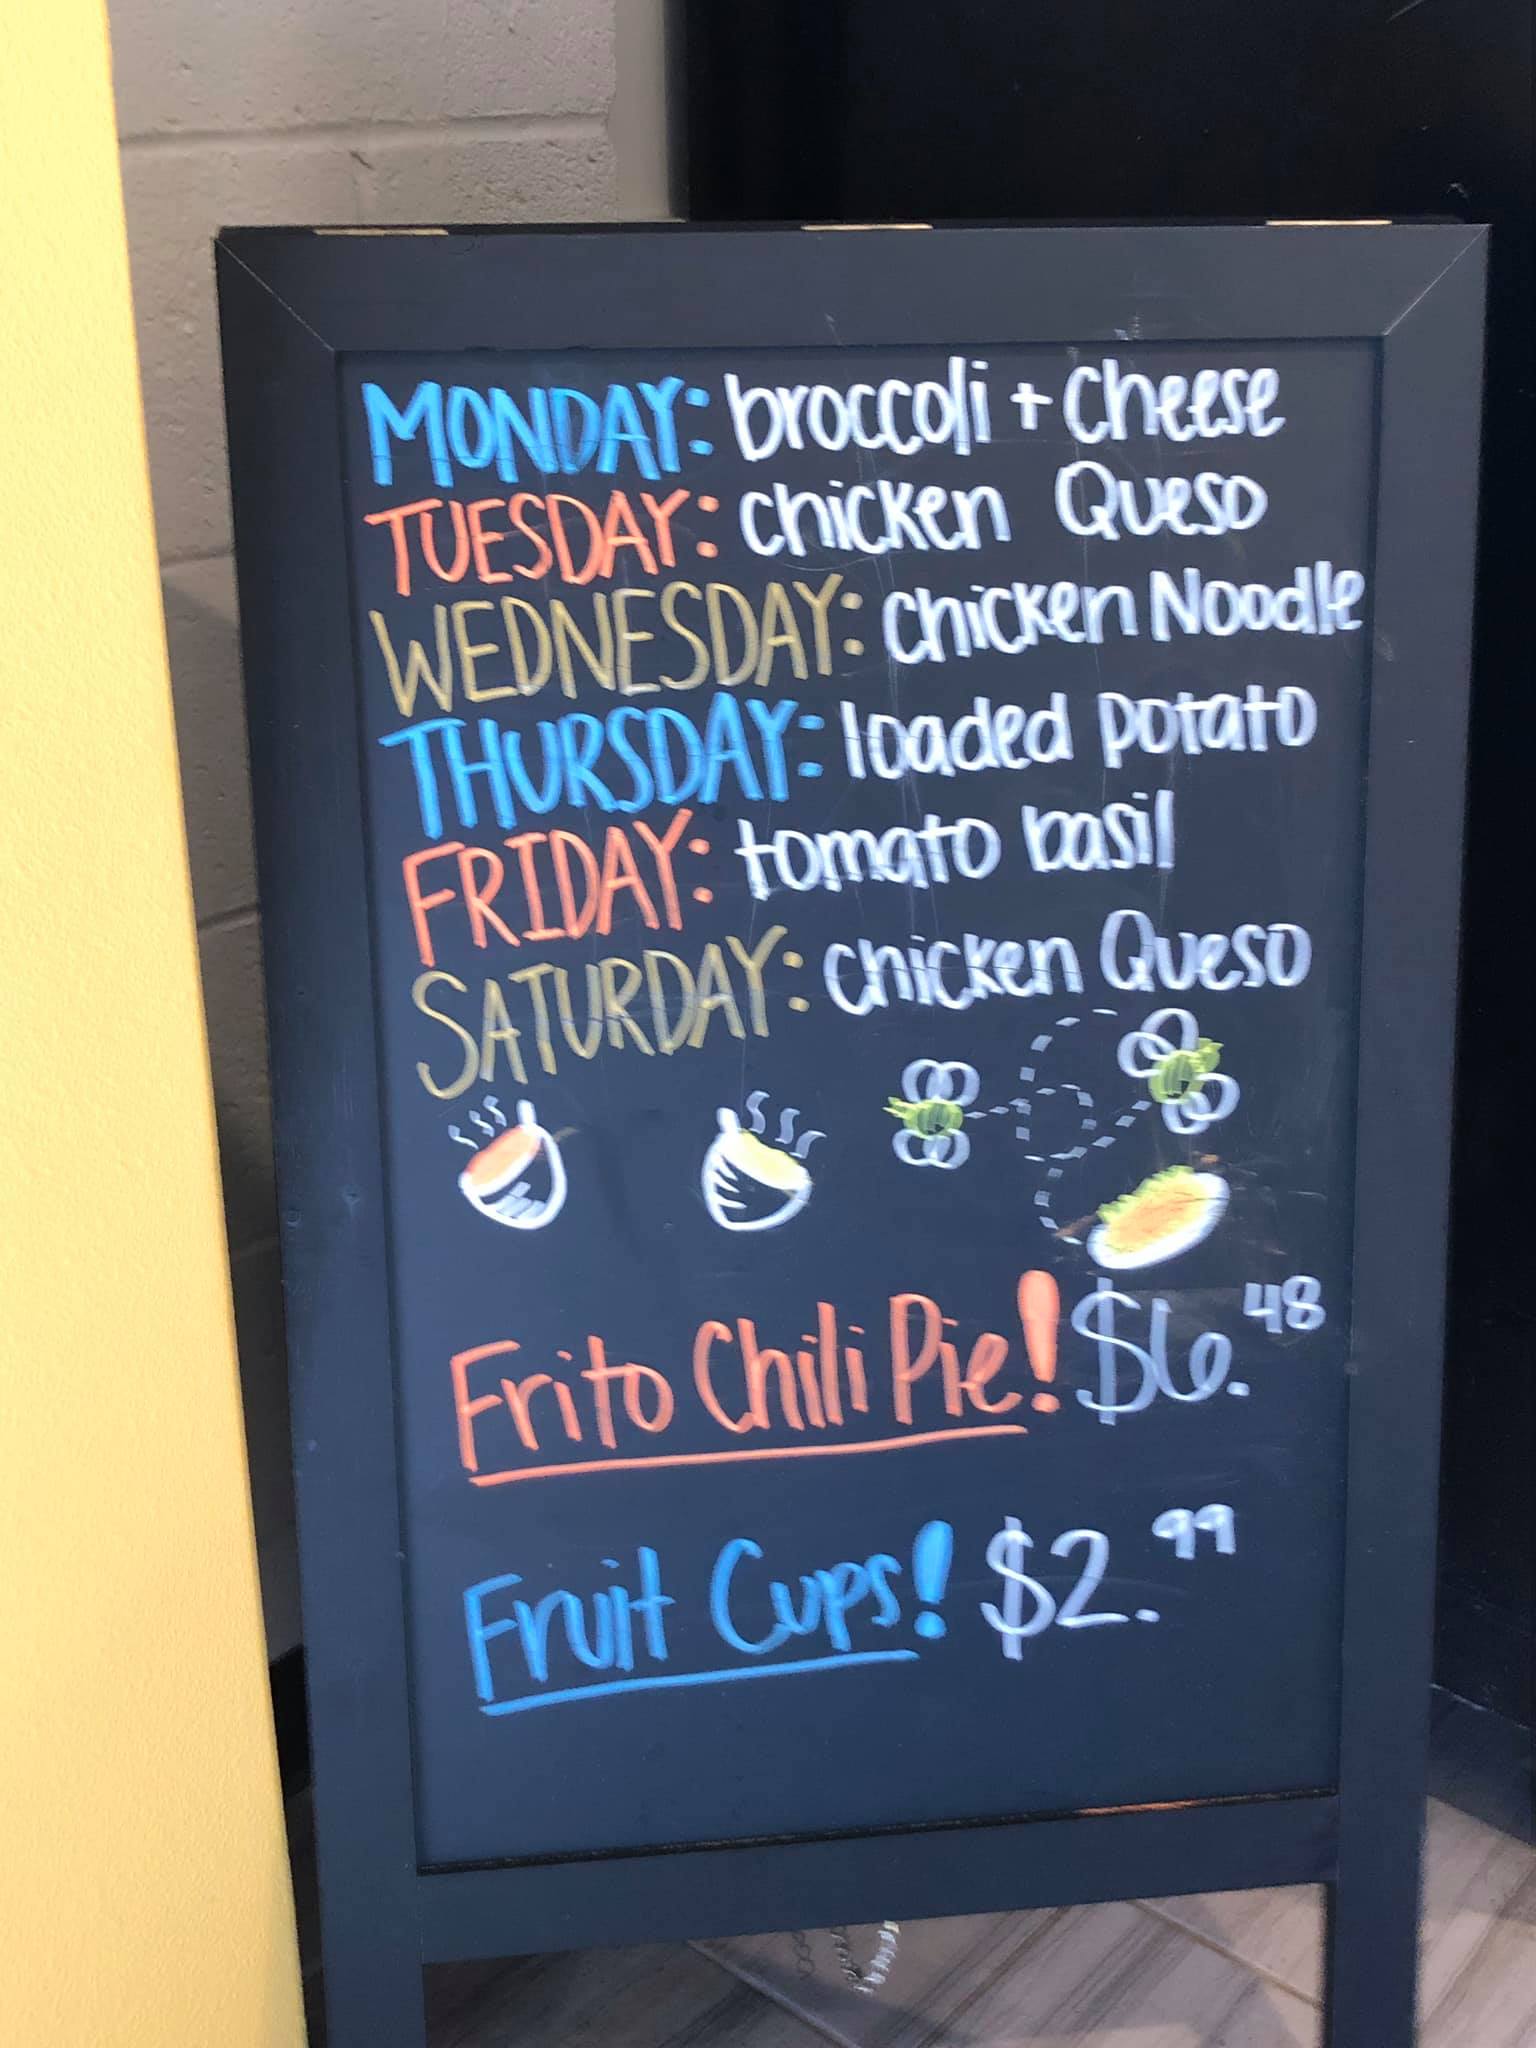 MONDAY: broccoli + Cheese
TUESDAY: chicken Queso
WEDNESDAY: chicken Noodle
THURSDAY: loaded potato
FRIDAY: tomato basil
SATURDAY: chicken Queso
Frito Chili Pie! $6.48
Fruit Cups! $2.99